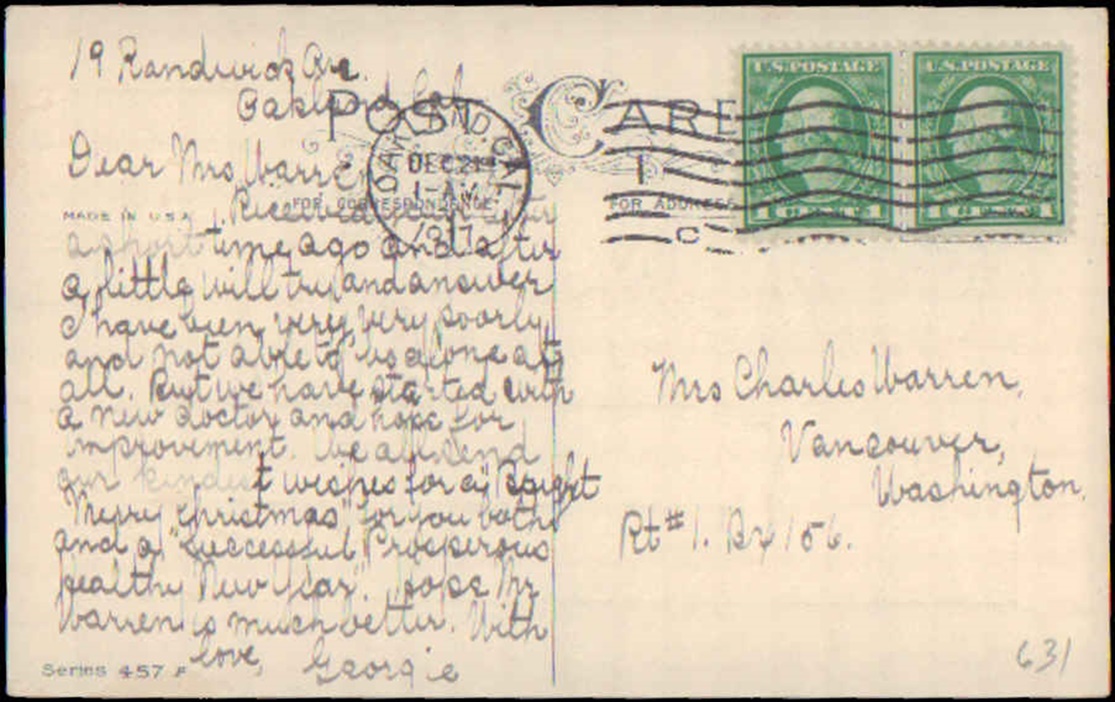 19 Randwick Ave.
Oakland Cal.
POST CARD
Dear Mrs Warren
OAKLAND, CAL.
DEC 21
1-AM
1917
FOR CORRESPONDENCE
FOR ADDRESS
MADE IN U.S.A.
U.S. POSTAGE
1 CENT 1
U.S. POSTAGE
1 CENT 1
Received your letter
a short time ago and after
a little will try and answer
I have been very, very poorly,
and not able to be alone at
all. But we have started with
a new doctor and hope for
improvement. We all send
our kindest wishes for a "Bright
Merry Christmas" for you both
and a "Successful Prosperous
healthy New Year". hope Mr
Warren is much better. With
love, Georgie
Series 457 F
Mrs Charles Warren,
Vancouver,
Washington.
Rt #1. Bx 156.
631